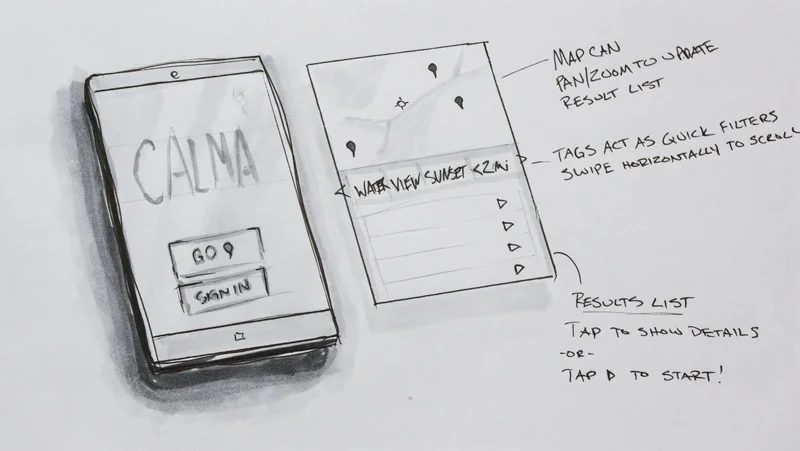 CALMA
GO
SIGN IN
MAP CAN
PAN/ZOOM TO UPDATE
RESULT LIST
< WATER VIEW SUNSET <2mi >
TAGS ACT AS QUICK FILTERS
SWIPE HORIZONTALLY TO SCROLL
RESULTS LIST
TAP TO SHOW DETAILS
-OR-
TAP ▷ TO START!